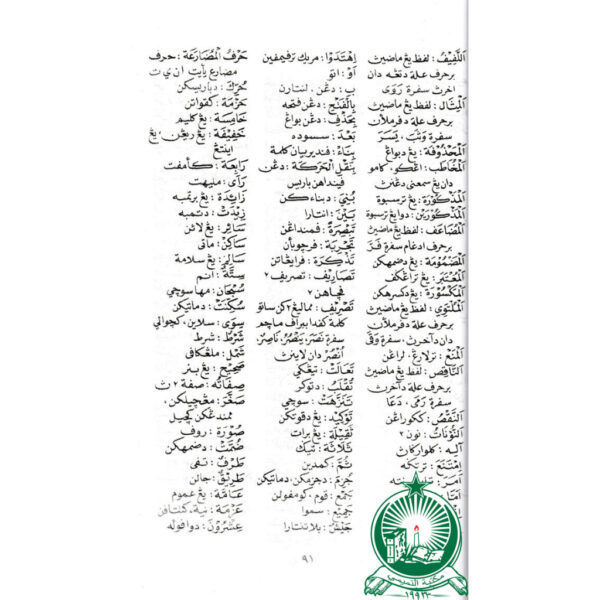 اَللَّفِيْفُ : لفظ يڠ ماضيڽ
برحرف علة دتڠه دان
اخرڽ سفرة رَوَى
اَلْمِثَالُ : لفظ يڠ ماضيڽ
برحرف علة دفرملاءن
سفرة وَثَبَ، يَسَرَ
اَلْمَحْذُوْفَةُ : يڠ دبواڠ
اَلْمُخَاطَبُ : اڠكو، كامو
دان يڠ سمعنى دڠنڽ
اَلْمَذْكُوْرَةُ : يڠ ترسبوة
اَلْمَذْكُوْرَيْنِ : دوا يڠ ترسبوة
اَلْمُضَاعَفُ : لفظ يڠ ماضيڽ
برحرف ادغام سفرة فَرَّ
اَلْمَضْمُوْمَةُ : يڠ دضمهكن
اَلْمُعْتَبَرُ : يڠ تراڠكف
اَلْمَكْسُوْرَةُ : يڠ دكسرهكن
اَلْمُلْتَوِيْ : لفظ يڠ ماضيڽ
برحرف علة دفرملاءن
دان دآخرڽ، سفرة وَقَى
اَلْمَنْعُ : ترلارڠ، لراڠن
اَلنَّاقِصُ : لفظ يڠ ماضيڽ
برحرف علة دآخرڽ
سفرة رَمَى، دَعَا
اَلنَّقْصُ : ككوراڠن
اَلنُّوْنَاتُ : نون ٢
آلية : كلواركان
اِمْتَنَعَ : ترتڬه
اِهْتَدَوْا : مريك ترفيمفين
اَوْ : اتو
بِ : دڠن، لنتارن
بِالْفَتْحِ : دڠن فتحه
بِحَذْفِ : دڠن بواڠ
بَعْدَ : سسوده
بِنَاءُ : فنديريان كلمة
بِنَقْلِ الْحَرَكَةِ : دڠن
فيندهن باريس
بُنِيَ : دبناءكن
بَيْنَ : انتارا
تَبْصِرَةً : فمنداڠن
تَجْرِبَة : فرچوبأن
تَذْكِرَة : فرايڠاتن
تَصَارِيْف : تصريف ٢
فچاهن ٢
تَصْرِيْف : مماليڠ٢كن ساتو
كلمة كفدا ببراف ماچم
سفرة نَصَرَ، يَنْصُرُ، نَاصِرٌ،
اُنْصُرْ دان لاينڽ
تَعَالَتْ : تيڠڬي
تُقْلَبُ : دتوكر
تَنَزَّهَتْ : سوچي
تَوْكِيْد : يڠ دقوتكن
ثَقِيْلَة : يڠ برات
ثَلَاثَة : تيڬ
ثُمَّ : كمدين
جُزِمَ : دجزمكن، دماتيكن
جَمْع : قوم، كومفولن
جَمِيْع : سموا
جَيْش : بلا تنتارا
حَرْفُ الْمُضَارَعَة : حرف
مضارع يأيت ا ن ي ت
حُرِّكَ : دباريسكن
خَامِسَة : يڠ كليم
رَابِعَة : كأمفت
رَأَى : مليهت
زَائِدَة : يڠ برتمبه
زِيْدَتْ : دتمبه
سَائِر : يڠ لائن
سَاكِن : ماتي
سَالِم : يڠ سلامة
سِتَّة : انم
سُبْحَان : مها سوچي
سُكِّنَتْ : دماتيكن
سِوَى : سلاين، كچوالي
شَرْط : شرط
شَمْل : ملڠكافي
صَحِيْح : يڠ بنر
صِفَاتُه : صفة ٢ ڽ
صَغِّرْ : مڠچيلكن،
صُوْرَة : روف
ضُمَّتْ : دضمهكن
طَرِيْق : جالن
عَامَّة : يڠ عموم
عِشْرُوْنَ : دوا فوله
٩١
مكتبة
١٩٩٢